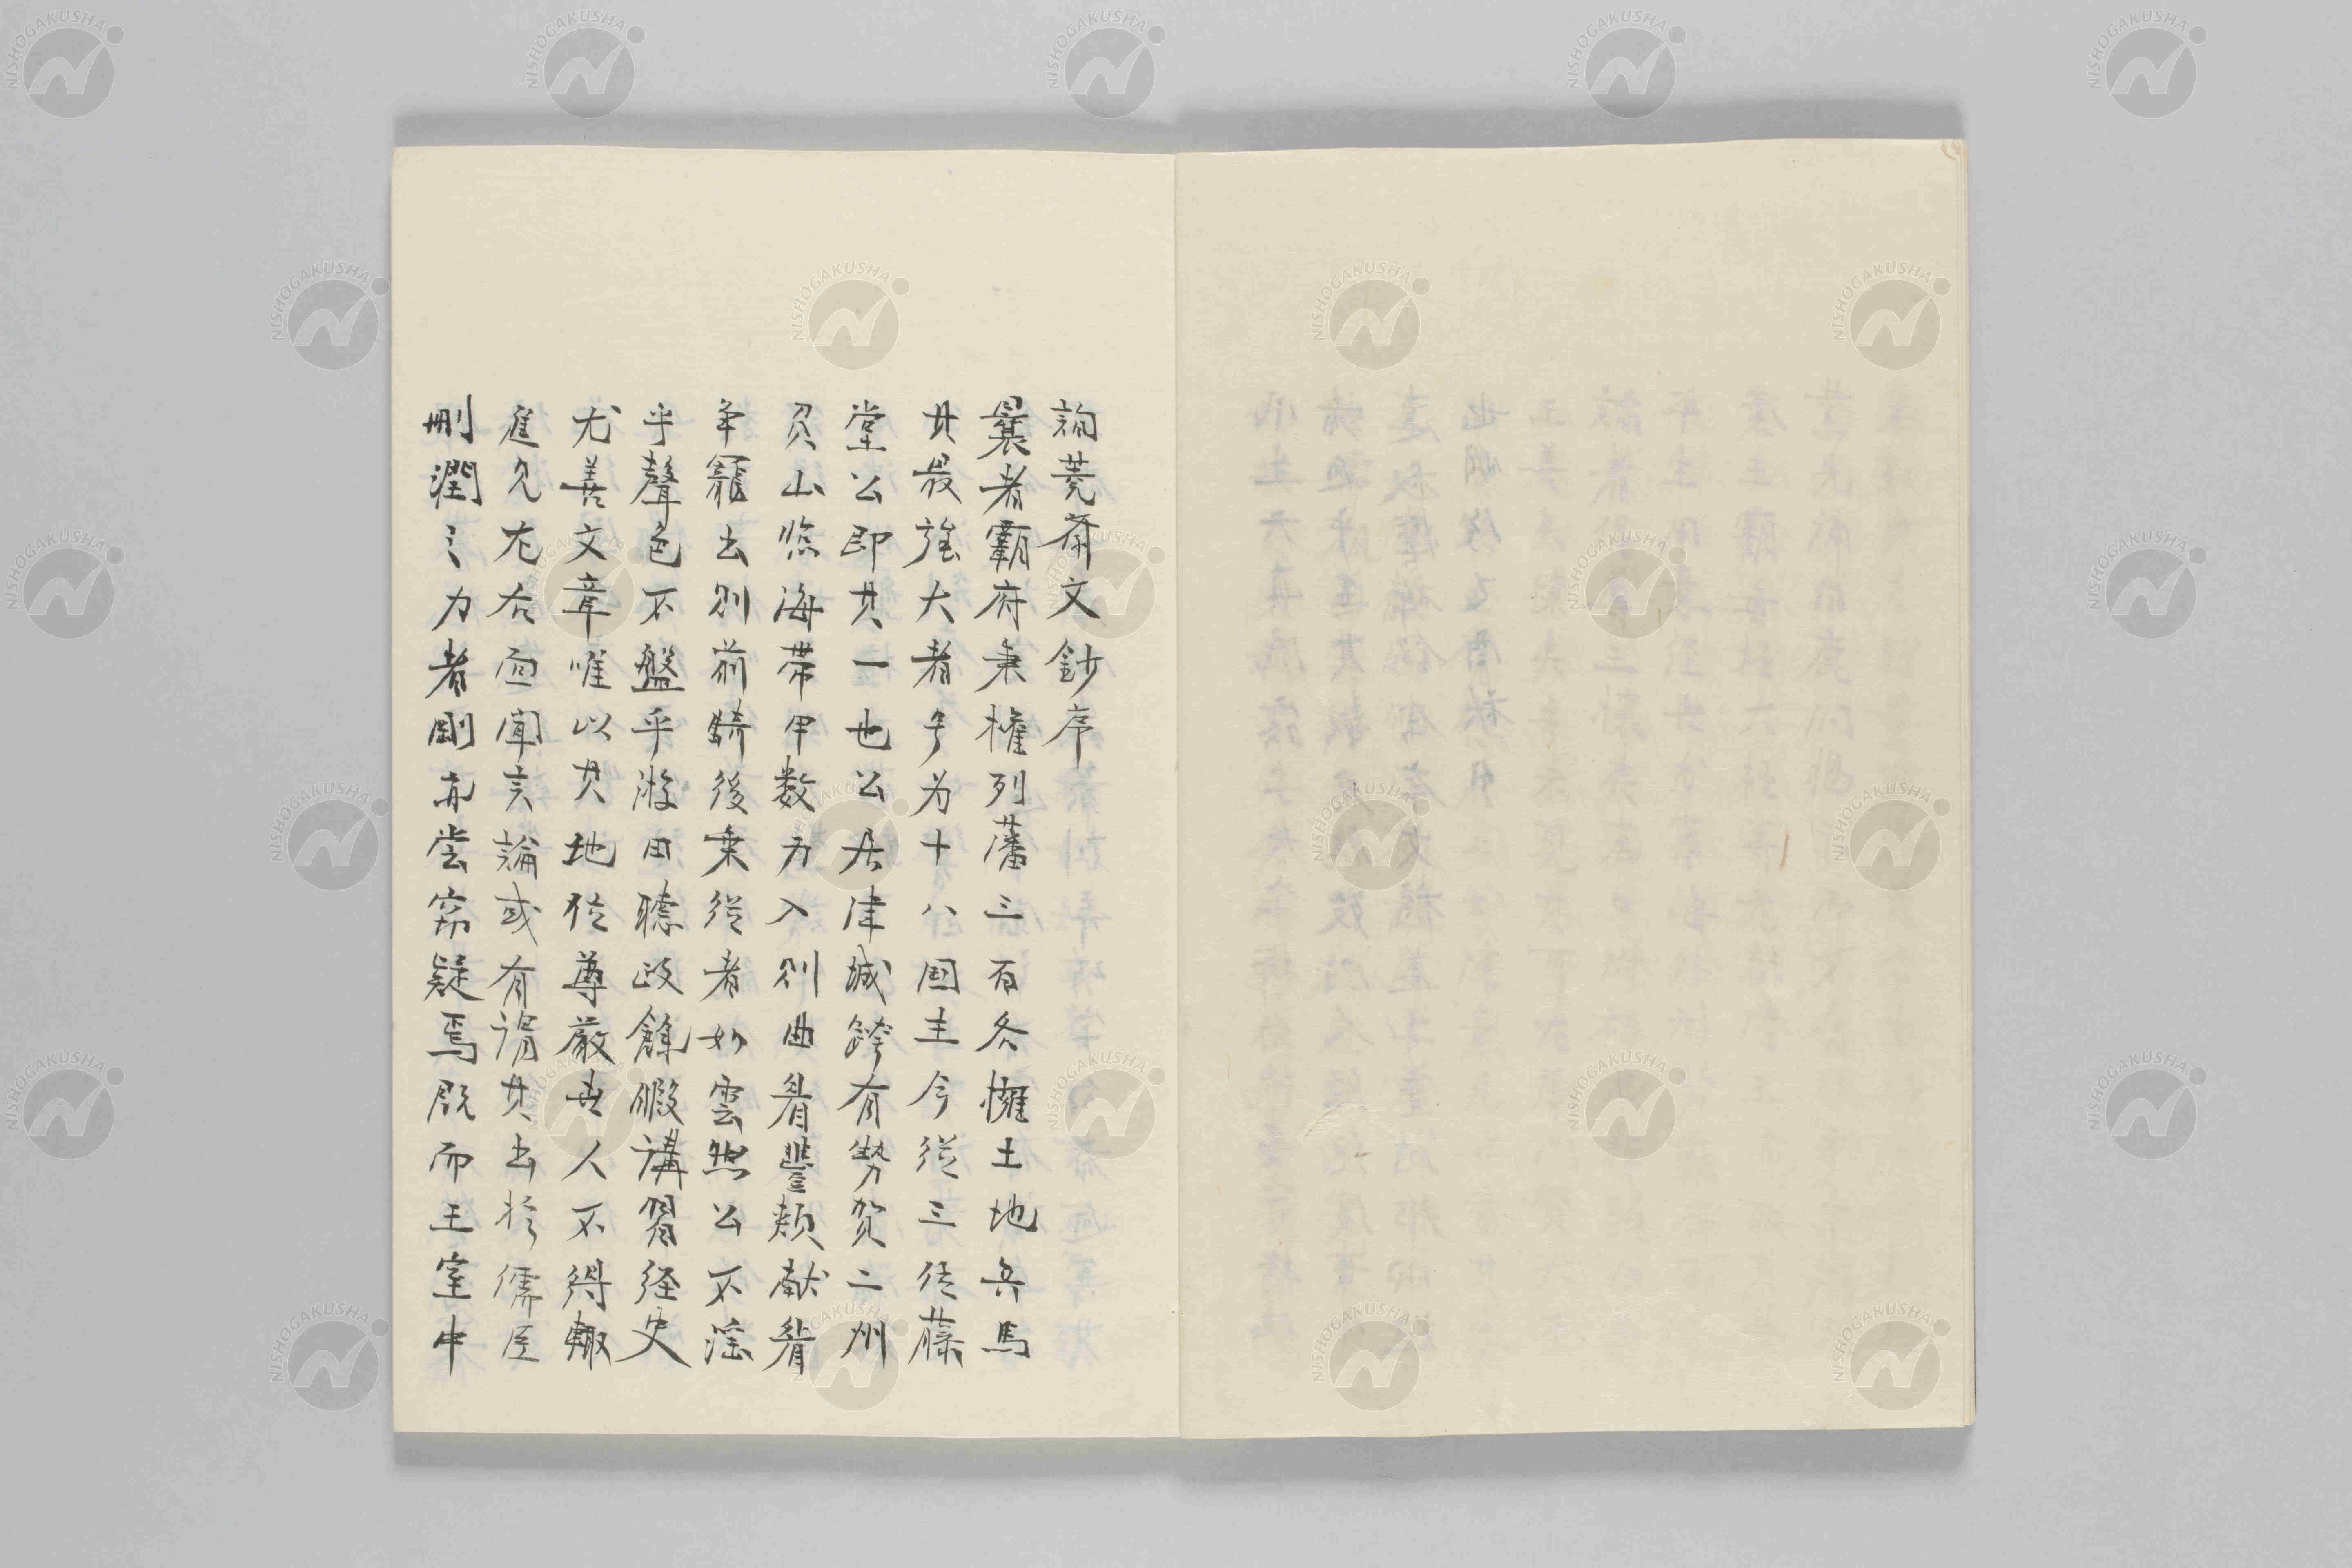 詢蕘斎文鈔序
曩者霸府秉権列藩三百各擁土地兵馬
其最強大者号为十八国主今従三位藤
堂公即其一也公居津城跨有勢賀二州
負山臨海帯甲数万入則曲眉豊頬献眉
争寵出則前騎後乗従者如雲然公不淫
乎聲色不盤乎游田聴政餘暇講習経史
尤善文章唯以其地位尊厳世人不得輙
進見左右面聞言論或有謂其出於儒臣
刪潤之力者剛亦嘗窃疑焉既而王室中
NISHOGAKUSHA